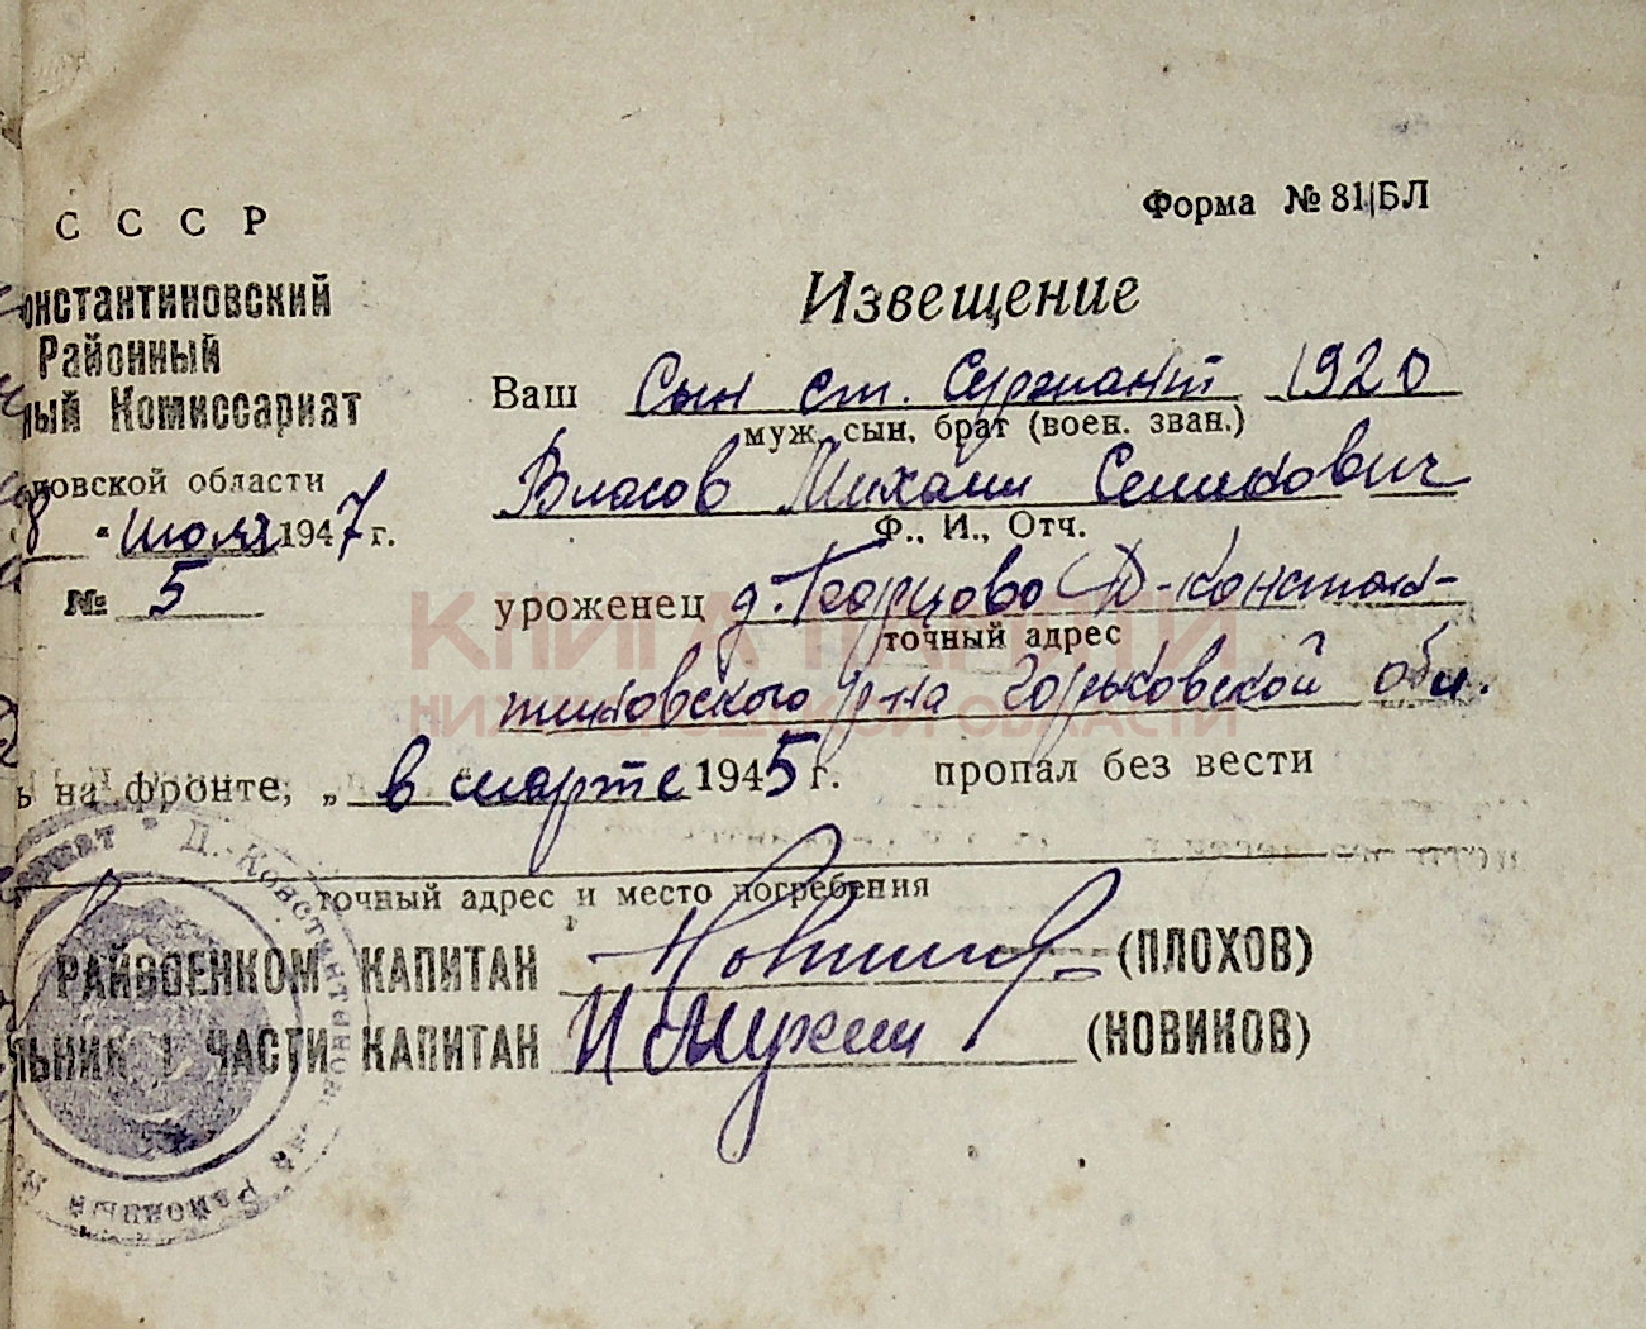 С С С Р
Форма № 81/БЛ
онстантиновский
Районный
ный Комиссариат
овской области
8 " июля 1947 г.
№ 5
Извещение
Ваш Сын ст. Сержант 1920
муж, сын, брат (воен. зван.)
Власов Михаил Семенович
Ф., И., Отч.
уроженец д. Борцово Д-Констан-
точный адрес
тиновского р-на Горьковской обл.
КНИГА ПАМЯТИ
НИЖЕГОРОДСКОЙ ОБЛАСТИ
ь на фронте, „ в марте 1945 г. пропал без вести
точный адрес и место погребения
РАЙВОЕНКОМ КАПИТАН (ПЛОХОВ)
ЛЬНИК 1 ЧАСТИ КАПИТАН (НОВИКОВ)
Д.-Константиновский Районный